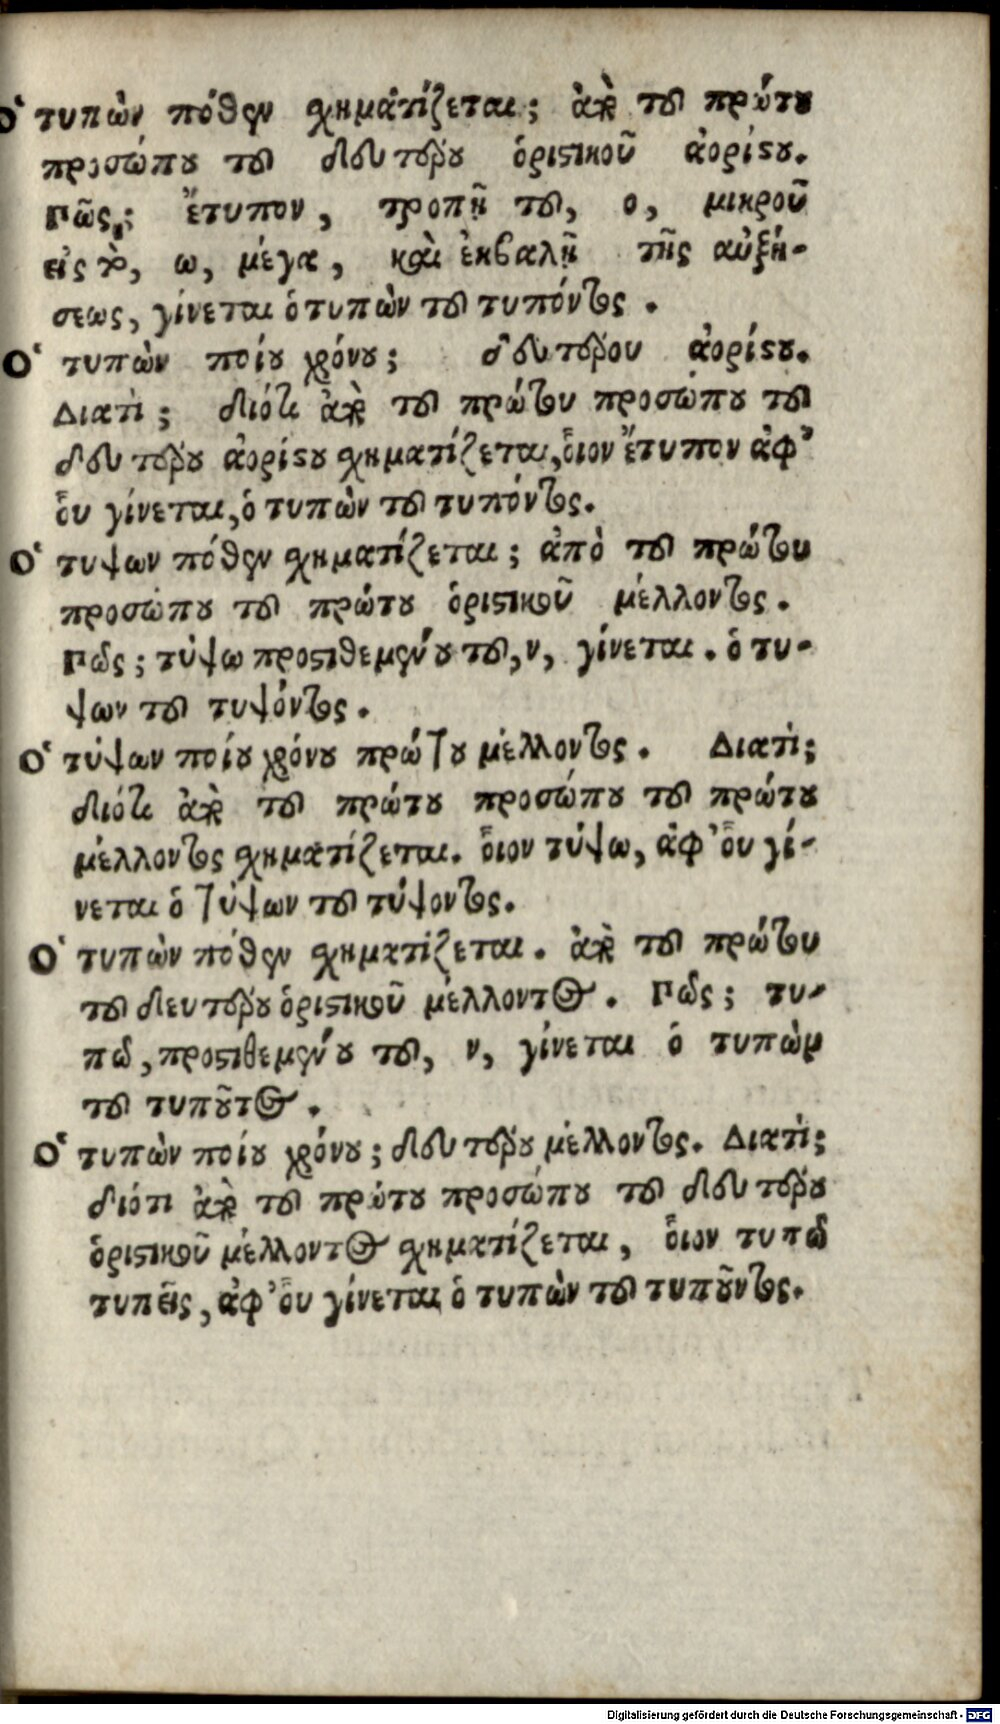 Ὁ τυπὼν πόθεν σχηματίζεται; ἀπὸ τοῦ πρώτου
προσώπου τοῦ δευτέρου ὁριστικοῦ ἀορίστου.
Πῶς; ἔτυπον, τροπῇ τοῦ, ο, μικροῦ
εἰς τὸ, ω, μέγα, καὶ ἐκβαλῇ τῆς αὐξή-
σεως, γίνεται ὁ τυπὼν τοῦ τυπόντος.
Ὁ τυπὼν ποίου χρόνου; δευτέρου ἀορίστου.
Διατὶ; διότι ἀπὸ τοῦ πρώτου προσώπου τοῦ
δευτέρου ἀορίστου σχηματίζεται, οἷον ἔτυπον ἀφ’
οὗ γίνεται, ὁ τυπὼν τοῦ τυπόντος.
Ὁ τυψων πόθεν σχηματίζεται; ἀπὸ τοῦ πρώτου
προσώπου τοῦ πρώτου ὁριστικοῦ μέλλοντος.
Πῶς; τύψω προστιθεμένου τοῦ, ν, γίνεται. ὁ τυ-
ψων τοῦ τυψόντος.
Ὁ τύψων ποίου χρόνου πρώτου μέλλοντος. Διατὶ;
διότι ἀπὸ τοῦ πρώτου προσώπου τοῦ πρώτου
μέλλοντος σχηματίζεται. οἷον τύψω, ἀφ’ οὗ γί-
νεται ὁ τύψων τοῦ τύψοντος.
Ὁ τυπὼν πόθεν σχηματίζεται. ἀπὸ τοῦ πρώτου
τοῦ δευτέρου ὁριστικοῦ μέλλοντος. Πῶς; τυ-
πῶ, προστιθεμένου τοῦ, ν, γίνεται ὁ τυπὼν
τοῦ τυποῦτος.
Ὁ τυπὼν ποίου χρόνου; δευτέρου μέλλοντος. Διατὶ;
διότι ἀπὸ τοῦ πρώτου προσώπου τοῦ δευτέρου
ὁριστικοῦ μέλλοντος σχηματίζεται, οἷον τυπῶ
τυπεῖς, ἀφ’ οὗ γίνεται ὁ τυπὼν τοῦ τυποῦντος.
Digitalisierung gefördert durch die Deutsche Forschungsgemeinschaft - DFG